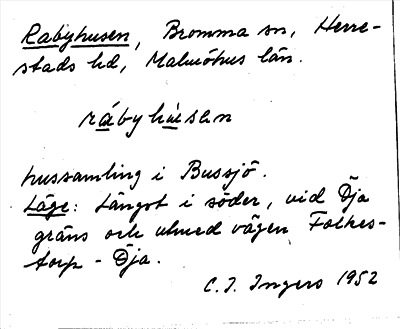 Rabyhusen, Bromma sn, Herre-
stads hd, Malmöhus län.
rábyhùsen
hussamling i Bussjö.
Läge: Längst i söder, vid Öja
gräns och utmed vägen Folkes-
torp - Öja.
C. I. Ingers 1952